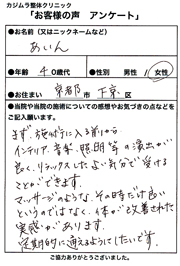 カジムラ整体クリニック
「お客様の声 アンケート」
●お名前(又はニックネームなど)
あいん
●年齢 40歳代 ●性別 男性 女性
●お住まい 京都市 下京区
●当院や当院の施術についての感想やお気づきの点などを
ご記入願います。
まず、施術に入る前から
インテリア、音楽、照明等の演出が
良く、リラックスしたよい気分で受ける
ことができます。
マッサージのような、その時だけ良い
というのではなく、体が改善された
実感があります。
定期的に通えるようにしたいです。
ご協力ありがとうございました。